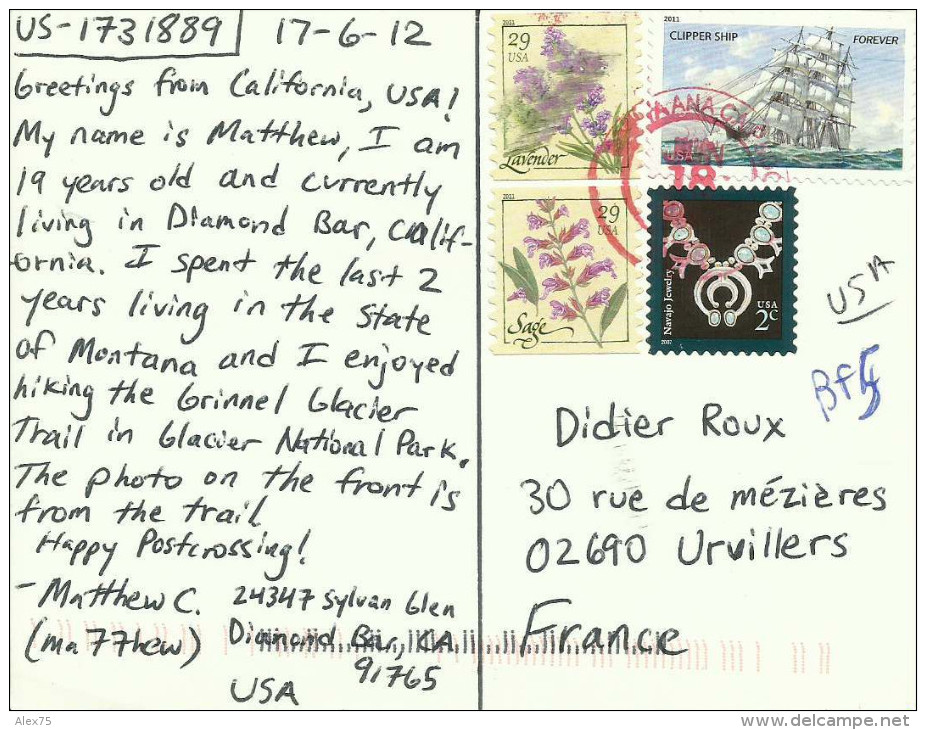 US-1731889 17-6-12
Greetings from California, USA!
My name is Matthew, I am
19 years old and currently
living in Diamond Bar, Calif-
ornia. I spent the last 2
years living in the State
of Montana and I enjoyed
hiking the Grinnel Glacier
Trail in Glacier National Park.
The photo on the front is
from the trail
Happy Postcrossing!
- Matthew C.
(ma77hew)
24347 Sylvan Glen
Diamond Bar, CA
91765
USA
2011
29
USA
Lavender
2011
CLIPPER SHIP
FOREVER
USA
18
2011
29
USA
Sage
Navajo Jewelry
USA
2c
2007
USA
Didier Roux
30 rue de mézières
02690 Urvillers
France
Alex75
www.delcampe.net